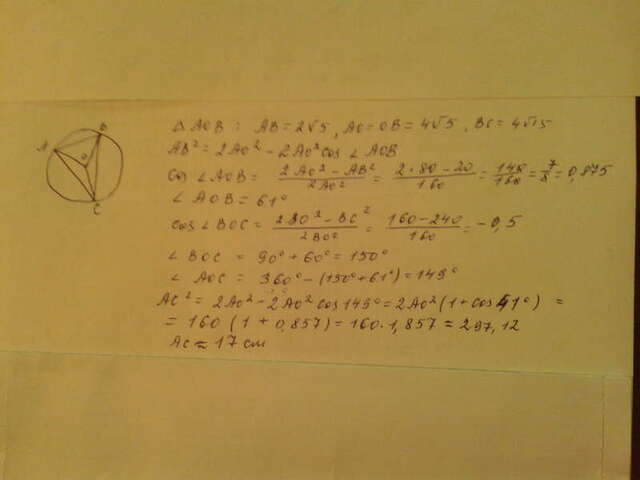 A
B
O
C
△ AOB : AB = 2√5, AO = OB = 4√5, BC = 4√15
AB² = 2AO² - 2AO² cos ∠ AOB
cos ∠ AOB = (2AO² - AB²)/(2AO²) = (2•80 - 20)/160 = 140/160 = 7/8 = 0,875
∠ AOB = 61°
cos ∠ BOC = (2BO² - BC²)/(2BO²) = (160 - 240)/160 = -0,5
∠ BOC = 90° + 60° = 150°
∠ AOC = 360° - (150° + 61°) = 149°
AC² = 2AO² - 2AO² cos 149° = 2AO² (1 + cos 41°) =
= 160 (1 + 0,857) = 160 · 1,857 = 297,12
AC ≈ 17 см